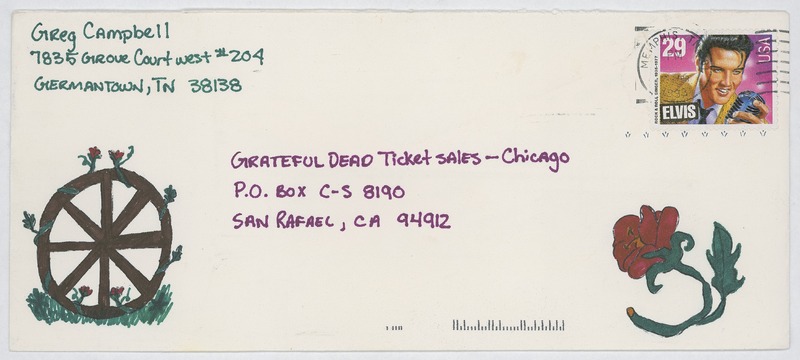 Greg Campbell
7835 Grove Court west #204
GERMANTOWN, TN 38138
MEMPHIS
29
USA
ROCK & ROLL SINGER, 1935-1977
ELVIS
GRATEFUL DEAD Ticket SALES – Chicago
P.O. BOX C-S 8190
SAN RAFAEL, CA 94912